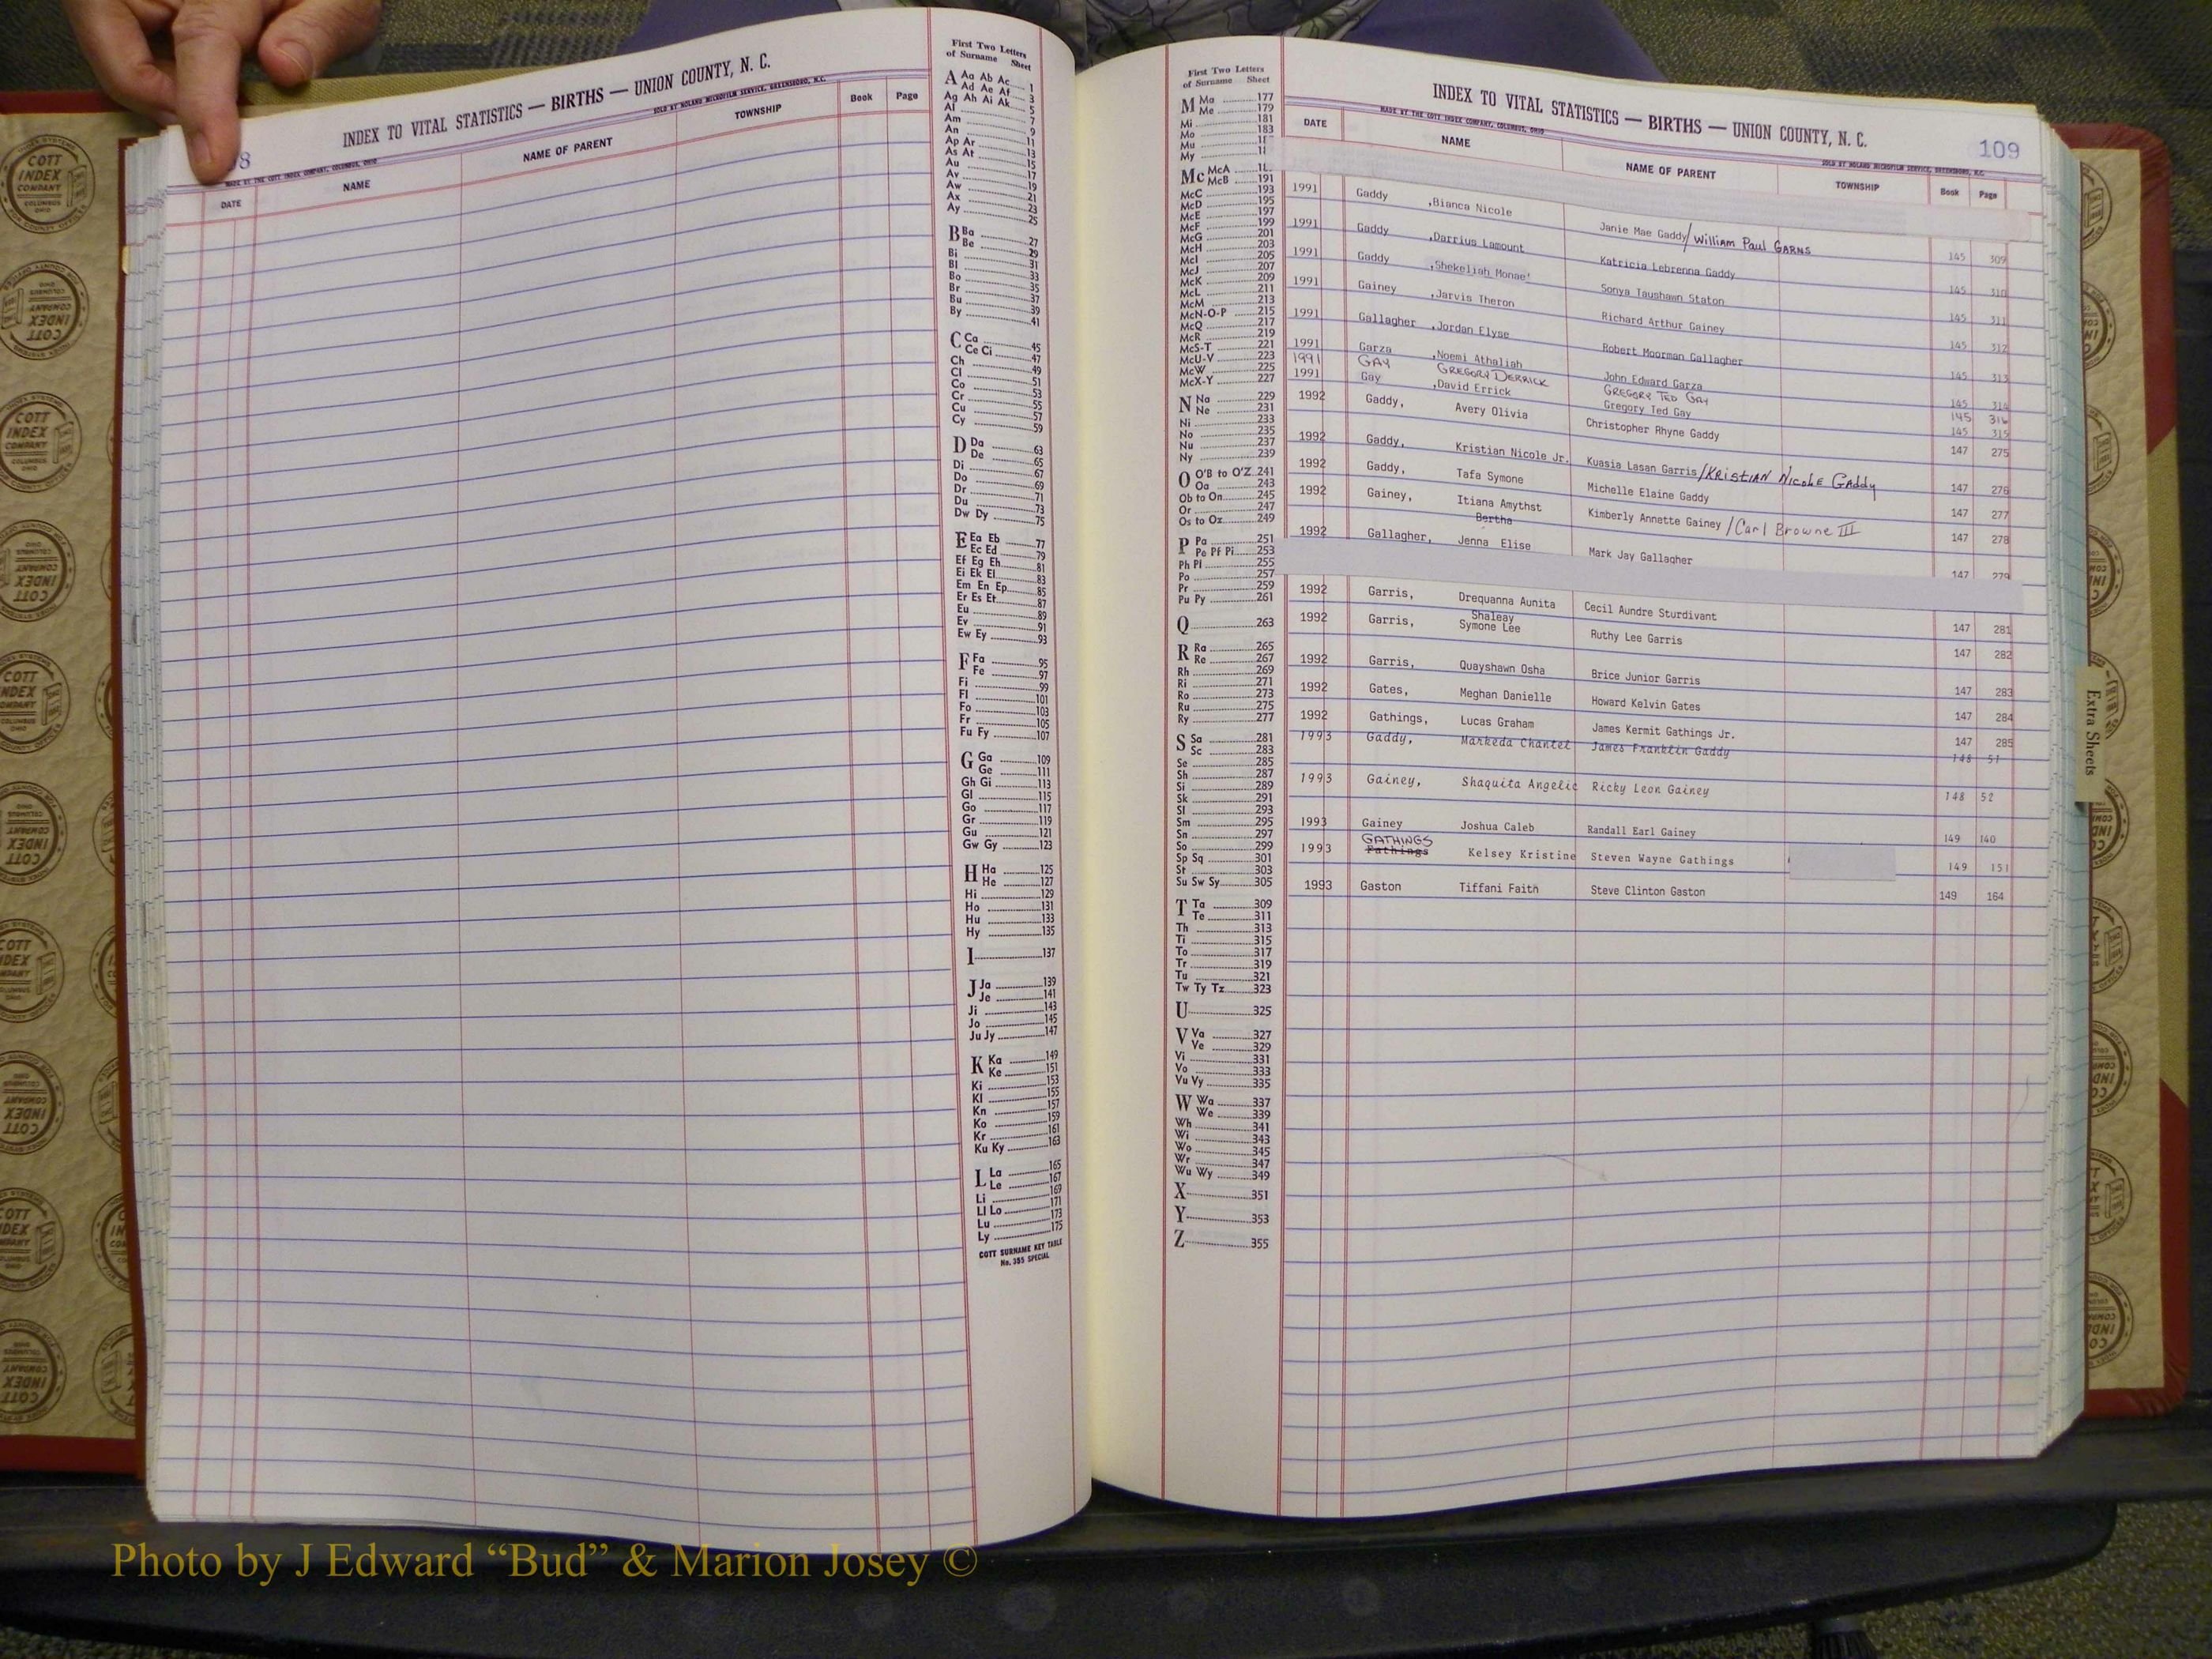 INDEX TO VITAL STATISTICS — BIRTHS — UNION COUNTY, N. C.
8
MADE BY THE COTT INDEX COMPANY, COLUMBUS, OHIO
SOLD BY NOLAND MICROFILM SERVICE, GREENSBORO, N.C.
DATE NAME NAME OF PARENT TOWNSHIP Book Page
First Two Letters
of Surname Sheet
A Aa Ab Ac 1
Ad Ae Af 3
Ag Ah Ai Ak 5
Al 7
Am 9
An 11
Ap Ar 13
As At 15
Au 17
Av 19
Aw 21
Ax 23
Ay 25
B Ba 27
Be 29
Bi 31
Bl 33
Bo 35
Br 37
Bu 39
By 41
C Ca 45
Ce Ci 47
Ch 49
Cl 51
Co 53
Cr 55
Cu 57
Cy 59
D Da 63
De 65
Di 67
Do 69
Dr 71
Du 73
Dw Dy 75
E Ea Eb 77
Ec Ed 79
Ef Eg Eh 81
Ei Ek El 83
Em En Ep 85
Er Es Et 87
Eu 89
Ev 91
Ew Ey 93
F Fa 95
Fe 97
Fi 99
Fl 101
Fo 103
Fr 105
Fu Fy 107
G Ga 109
Ge 111
Gh Gi 113
Gl 115
Go 117
Gr 119
Gu 121
Gw Gy 123
H Ha 125
He 127
Hi 129
Ho 131
Hu 133
Hy 135
I 137
J Ja 139
Je 141
Ji 143
Jo 145
Ju Jy 147
K Ka 149
Ke 151
Ki 153
Kl 155
Kn 157
Ko 159
Kr 161
Ku Ky 163
L La 165
Le 167
Li 169
Ll Lo 171
Lu 173
Ly 175
COTT SURNAME KEY TABLE
No. 355 SPECIAL
First Two Letters
of Surname Sheet
M Ma 177
Me 179
Mi 181
Mo 183
Mu
My
Mc McA
McB 191
McC 193
McD 195
McE 197
McF 199
McG 201
McH 203
McI 205
McJ 207
McK 209
McL 211
McM 213
McN-O-P 215
McQ 217
McR 219
McS-T 221
McU-V 223
McW 225
McX-Y 227
N Na 229
Ne 231
Ni 233
No 235
Nu 237
Ny 239
O O'B to O'Z 241
Oa 243
Ob to On 245
Or 247
Os to Oz 249
P Pa 251
Pe Pf Pi 253
Ph Pl 255
Po 257
Pr 259
Pu Py 261
Q 263
R Ra 265
Re 267
Rh 269
Ri 271
Ro 273
Ru 275
Ry 277
S Sa 281
Sc 283
Se 285
Sh 287
Si 289
Sk 291
Sl 293
Sm 295
Sn 297
So 299
Sp Sq 301
St 303
Su Sw Sy 305
T Ta 309
Te 311
Th 313
Ti 315
To 317
Tr 319
Tu 321
Tw Ty Tz 323
U 325
V Va 327
Ve 329
Vi 331
Vo 333
Vu Vy 335
W Wa 337
We 339
Wh 341
Wi 343
Wo 345
Wr 347
Wu Wy 349
X 351
Y 353
Z 355
INDEX TO VITAL STATISTICS — BIRTHS — UNION COUNTY, N. C.
109
MADE BY THE COTT INDEX COMPANY, COLUMBUS, OHIO
SOLD BY NOLAND MICROFILM SERVICE, GREENSBORO, N.C.
DATE NAME NAME OF PARENT TOWNSHIP Book Page
1991 Gaddy ,Bianca Nicole Janie Mae Gaddy/William Paul GARNS 145 309
1991 Gaddy ,Darrius Lamount Katricia Lebrenna Gaddy 145 310
1991 Gaddy ,Shekeliah Monae' Sonya Taushawn Staton 145 311
1991 Gainey ,Jarvis Theron Richard Arthur Gainey 145 312
1991 Gallagher ,Jordan Elyse Robert Moorman Gallagher 145 313
1991 Garza ,Noemi Athaliah John Edward Garza 145 314
1991 GAY GREGORY DERRICK GREGORY TED GAY 145 316
1991 Gay ,David Errick Gregory Ted Gay 145 315
1992 Gaddy, Avery Olivia Christopher Rhyne Gaddy 147 275
1992 Gaddy, Kristian Nicole Jr. Kuasia Lasan Garris/KRISTIAN NICOLE GADDY 147 276
1992 Gaddy, Tafa Symone Michelle Elaine Gaddy 147 277
1992 Gainey, Itiana Amythst Kimberly Annette Gainey /Carl Browne III 147 278
Bertha
1992 Gallagher, Jenna Elise Mark Jay Gallagher 147 279
1992 Garris, Drequanna Aunita Cecil Aundre Sturdivant 147 281
Shaleay
1992 Garris, Symone Lee Ruthy Lee Garris 147 282
1992 Garris, Quayshawn Osha Brice Junior Garris 147 283
1992 Gates, Meghan Danielle Howard Kelvin Gates 147 284
1992 Gathings, Lucas Graham James Kermit Gathings Jr. 147 285
1993 Gaddy, Markeda Chantel James Franklin Gaddy 148 51
1993 Gainey, Shaquita Angelic Ricky Leon Gainey 148 52
1993 Gainey Joshua Caleb Randall Earl Gainey 149 140
GATHINGS
1993 Fathings Kelsey Kristine Steven Wayne Gathings 149 151
1993 Gaston Tiffani Faith Steve Clinton Gaston 149 164
Extra Sheets
COTT INDEX COMPANY COLUMBUS OHIO
Photo by J Edward “Bud” & Marion Josey ©